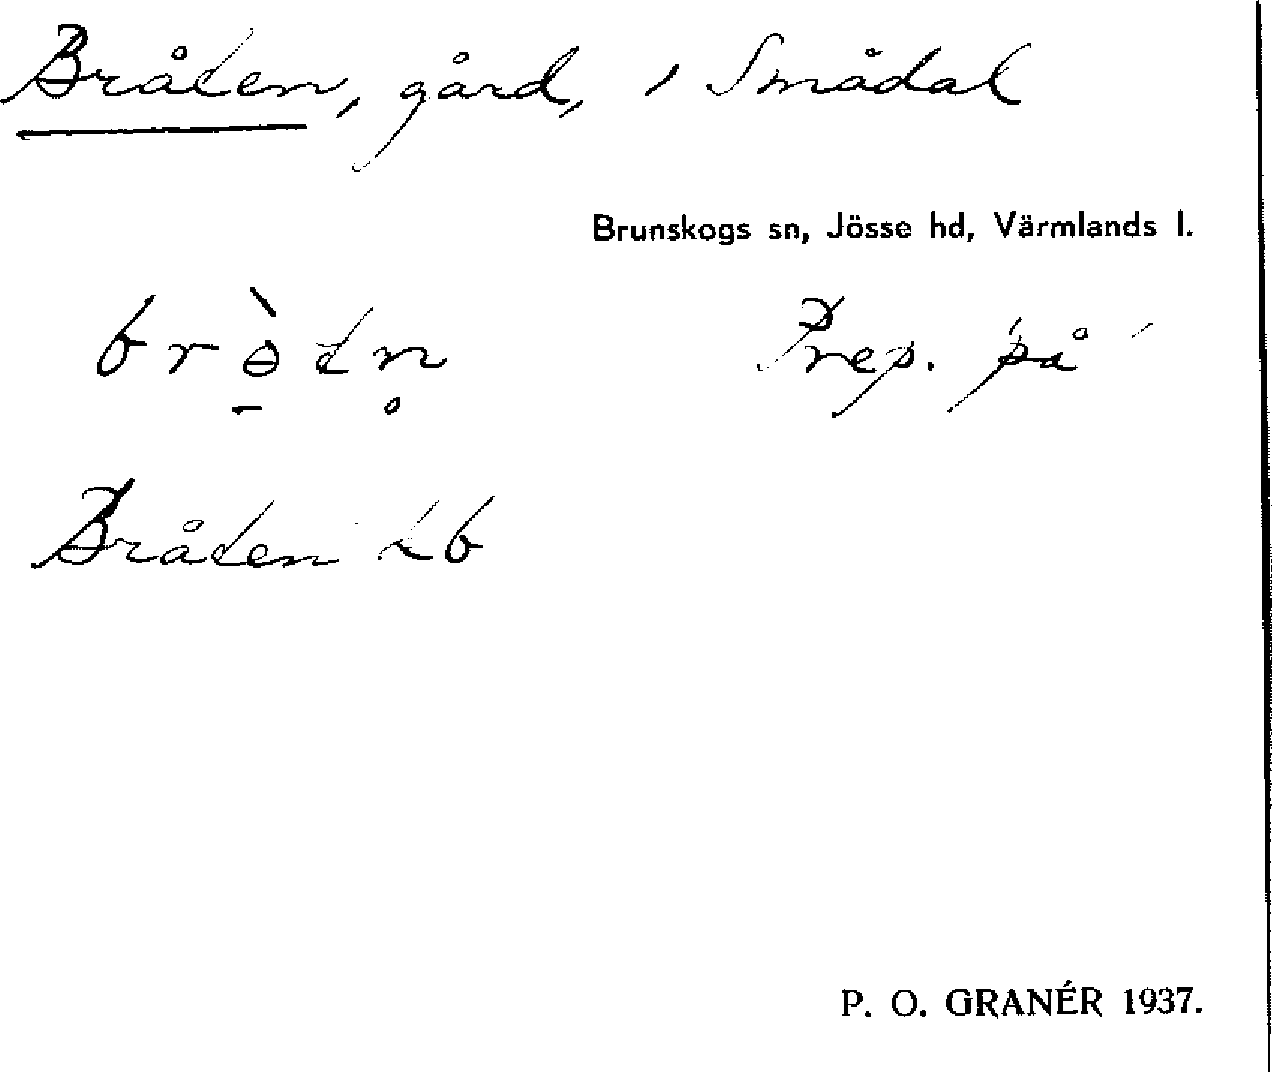 Bråten, gård, i Smådal
Brunskogs sn, Jösse hd, Värmlands l.
brə̱̀tn̥ Prep. "på"
Bråten Lb
P. O. GRANÉR 1937.